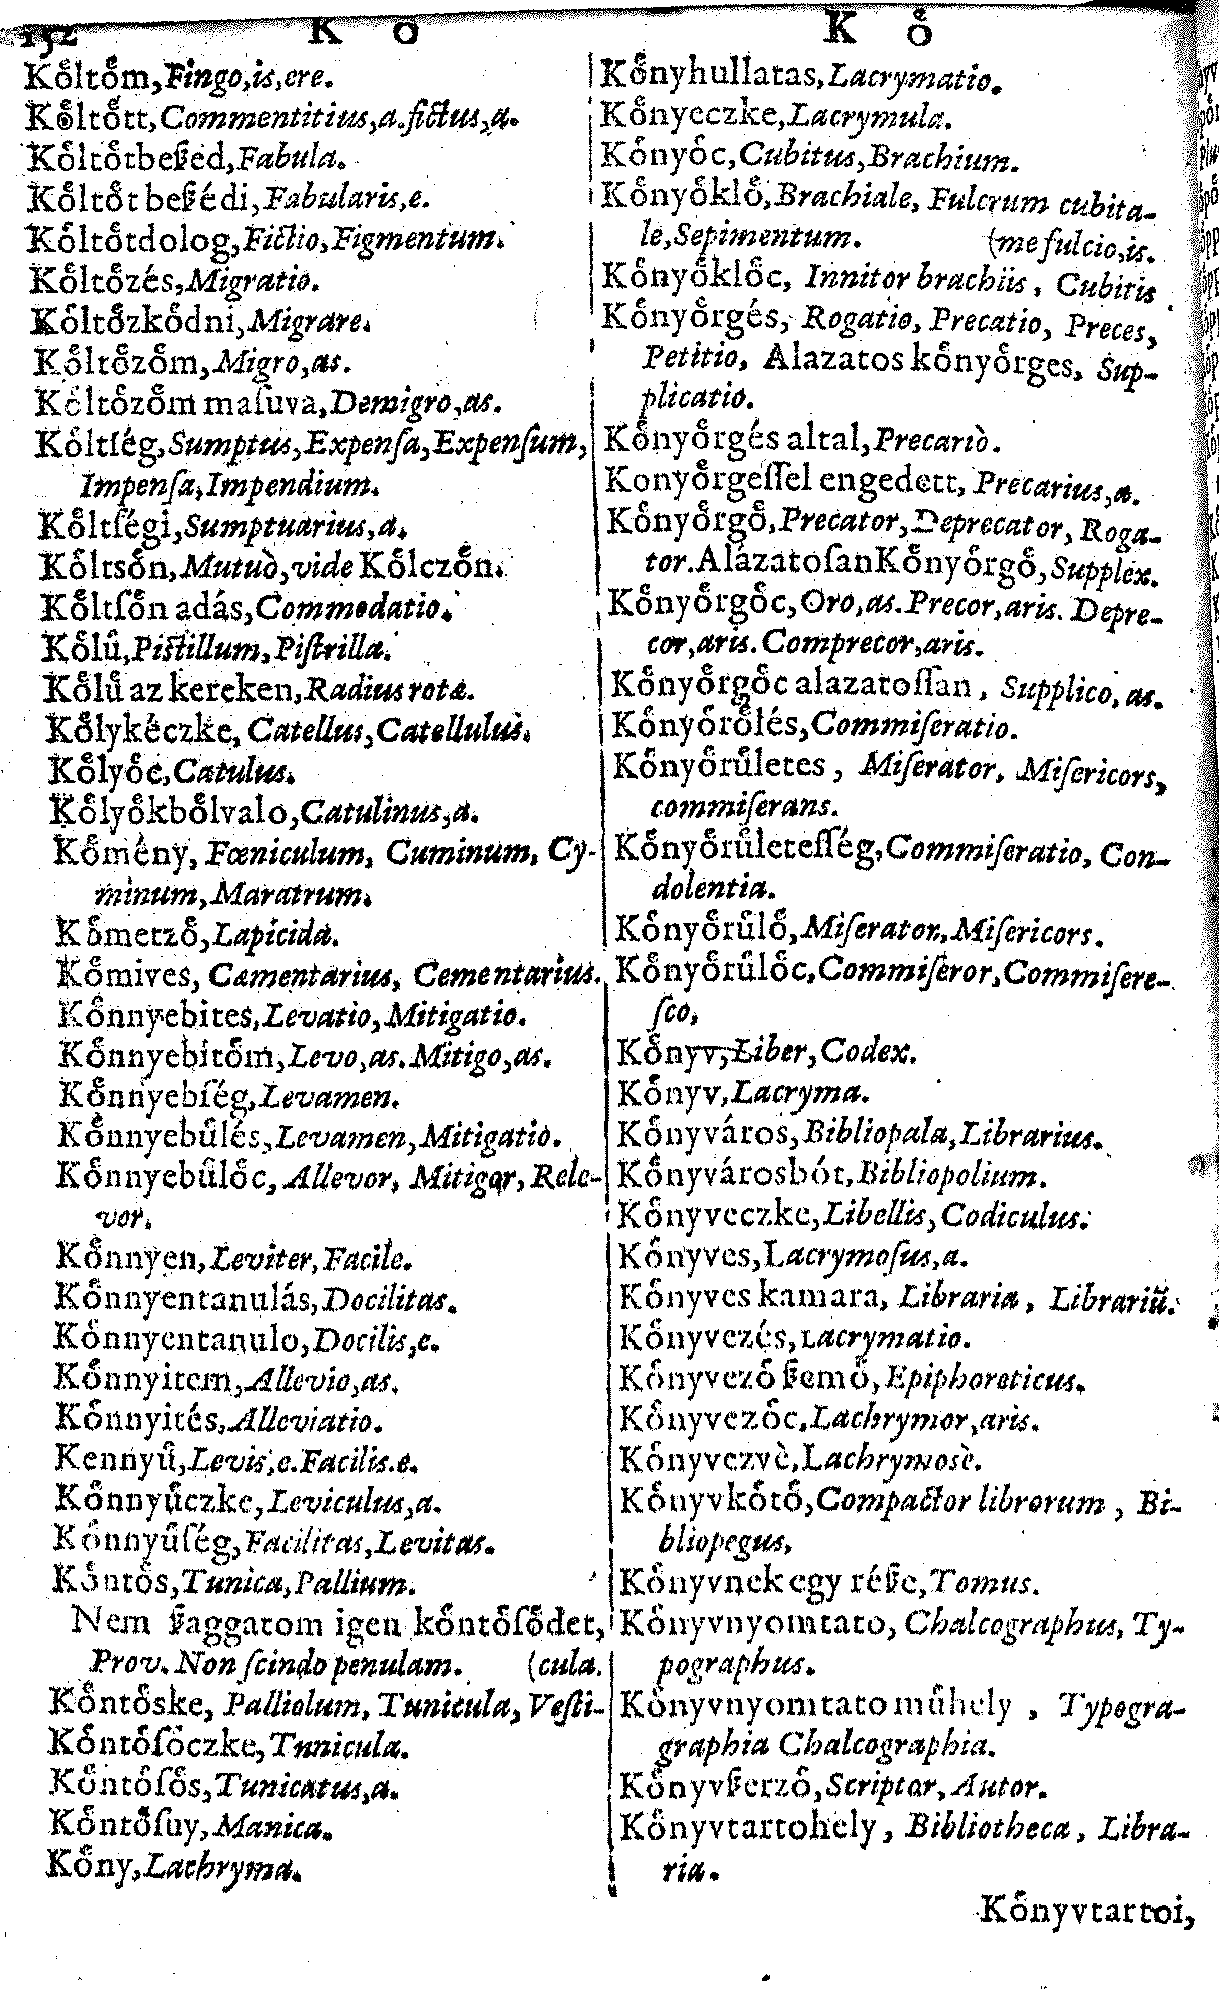 152 K Oͤ
Koͤltoͤm, Fingo, is, ere.
Koͤltoͤtt, Commentitius, a. fictus, a.
Koͤltoͤtbeßed, Fabula.
Koͤltoͤt beßédi, Fabularis, e.
Koͤltoͤtdolog, Fictio, Figmentum.
Koͤltoͤzés, Migratio.
Koͤltoͤzkoͤdni, Migrare.
Koͤltoͤzoͤm, Migro, as.
Koͤltoͤzoͤm maſuva, Demigro, as.
Koͤltſég, Sumptus, Expenſa, Expenſum,
Impenſa, Impendium.
Koͤltſégi, Sumptuarius, a.
Koͤltsoͤn, Mutuò, vide Koͤlczoͤn.
Koͤltſoͤn adás, Commodatio.
Koͤluͤ, Piſtillum, Piſtrilla.
Koͤluͤ az kereken, Radius rotæ.
Koͤlykéczke, Catellus, Catellulus.
Koͤlyoͤc, Catulus.
Koͤlyoͤkboͤlvalo, Catulinus, a.
Koͤmény, Fœniculum, Cuminum, Cy-
minum, Maratrum.
Koͤmetzoͤ, Lapicida.
Koͤmives, Cæmentarius, Cementarius.
Koͤnnyebites, Levatio, Mitigatio.
Koͤnnyebitoͤm, Levo, as. Mitigo, as.
Koͤnnyebſég, Levamen.
Koͤnnyebuͤlés, Levamen, Mitigatio.
Koͤnnyebuͤloͤc, Allevor, Mitigor, Rele-
vor.
Koͤnnyen, Leviter, Facile.
Koͤnnyentanulás, Docilitas.
Koͤnnyentanulo, Docilis, e.
Koͤnnyitem, Allevio, as.
Koͤnnyités, Alleviatio.
Kennyuͤ, Levis, e. Facilis. e.
Koͤnnyuͤczke, Leviculus, a.
Koͤnnyuͤſég, Facilitas, Levitas.
Koͤntoͤs, Tunica, Pallium.
Nem ßaggatom igen koͤntoͤſoͤdet,
Prov. Non ſcindo penulam. (cula.
Koͤntoͤske, Palliolum, Tunicula, Veſti-
Koͤntoͤſoͤczke, Tunicula.
Koͤntoͤſoͤs, Tunicatus, a.
Koͤntoͤſuy, Manica.
Koͤny, Lachryma.
K Oͤ
Koͤnyhullatas, Lacrymatio.
Koͤnyeczke, Lacrymula.
Koͤnyoͤc, Cubitus, Brachium.
Koͤnyoͤkloͤ, Brachiale, Fulcrum cubita-
le, Sepimentum. (me fulcio, is.
Koͤnyoͤkloͤc, Innitor brachiis, Cubitis
Koͤnyoͤrgés, Rogatio, Precatio, Preces,
Petitio, Alazatos koͤnyoͤrges, Sup-
plicatio.
Koͤnyoͤrgés altal, Precariò.
Konyoͤrgeſſel engedett, Precarius, a.
Koͤnyoͤrgoͤ, Precator, Deprecator, Roga-
tor. Alázatoſan Koͤnyoͤrgoͤ, Supplex.
Koͤnyoͤrgoͤc, Oro, as. Precor, aris. Depre-
cor, aris. Comprecor, aris.
Koͤnyoͤrgoͤc alazatoſſan, Supplico, as.
Koͤnyoͤroͤlés, Commiſeratio.
Koͤnyoͤruͤletes, Miſerator, Miſericors,
commiſerans.
Koͤnyoͤruͤleteſſég, Commiſeratio, Con-
dolentia.
Koͤnyoͤruͤloͤ, Miſerator, Miſericors.
Koͤnyoͤruͤloͤc, Commiſeror, Commiſere-
ſco,
Koͤnyv, Liber, Codex.
Koͤnyv, Lacryma.
Koͤnyváros, Bibliopala, Librarius.
Koͤnyvárosbót, Bibliopolium.
Koͤnyveczke, Libellis, Codiculus.
Koͤnyves, Lacrymoſus, a.
Koͤnyves kamara, Libraria, Librariũ.
Koͤnyvezés, Lacrymatio.
Koͤnyvezoͤ ßemoͤ, Epiphoreticus.
Koͤnyvezoͤc, Lachrymor, aris.
Koͤnyvezvè, Lachrymosè.
Koͤnyvkoͤtoͤ, Compactor librorum, Bi-
bliopegus,
Koͤnyvnek egy réße, Tomus.
Koͤnyvnyomtato, Chalcographus, Ty-
pographus.
Koͤnyvnyomtato muͤhely, Typogra-
graphia Chalcographia.
Koͤnyvßerzoͤ, Scriptor, Autor.
Koͤnyvtartohely, Bibliotheca, Libra-
ria.
Koͤnyvtartoi,